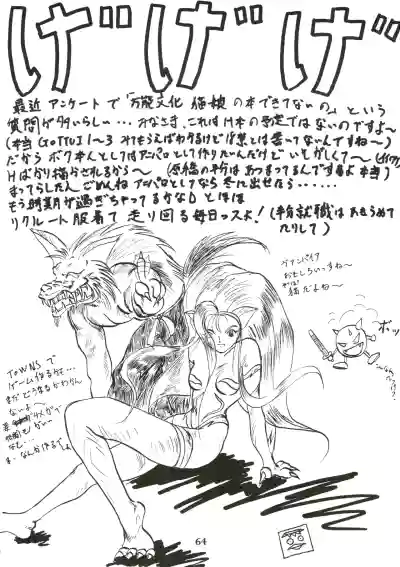 げ゛げ゛げ゛
最近アンケートで「万能文化猫娘の本できてないの」という
質問が多いらしい...みなさま、これはH本の予定ではないのですよ〜
(本当 GOTTUI 1〜3 みてもらえばわかるけど18禁とは書いてないんですね〜)
だからボク本人としてはアニパロとして作りたいんだけどいそがしくて〜
Hばかり描かされるから〜 (原稿の半分はあつまってるんですよ 本当)
まってらした人ごめんねアニパロとしてなら冬に出せたら......
もう時期が過ぎちゃってるかな
リクルート服着て走り回る毎日っスよ!
ヴァンパイア
おもしろいっすね〜
やっぱ
猫だよね〜
TOWNSで
ゲーム作るかも...
まだどうなるかわかん
ないよ〜
ま、なんか作るでしょ
ボッ
64